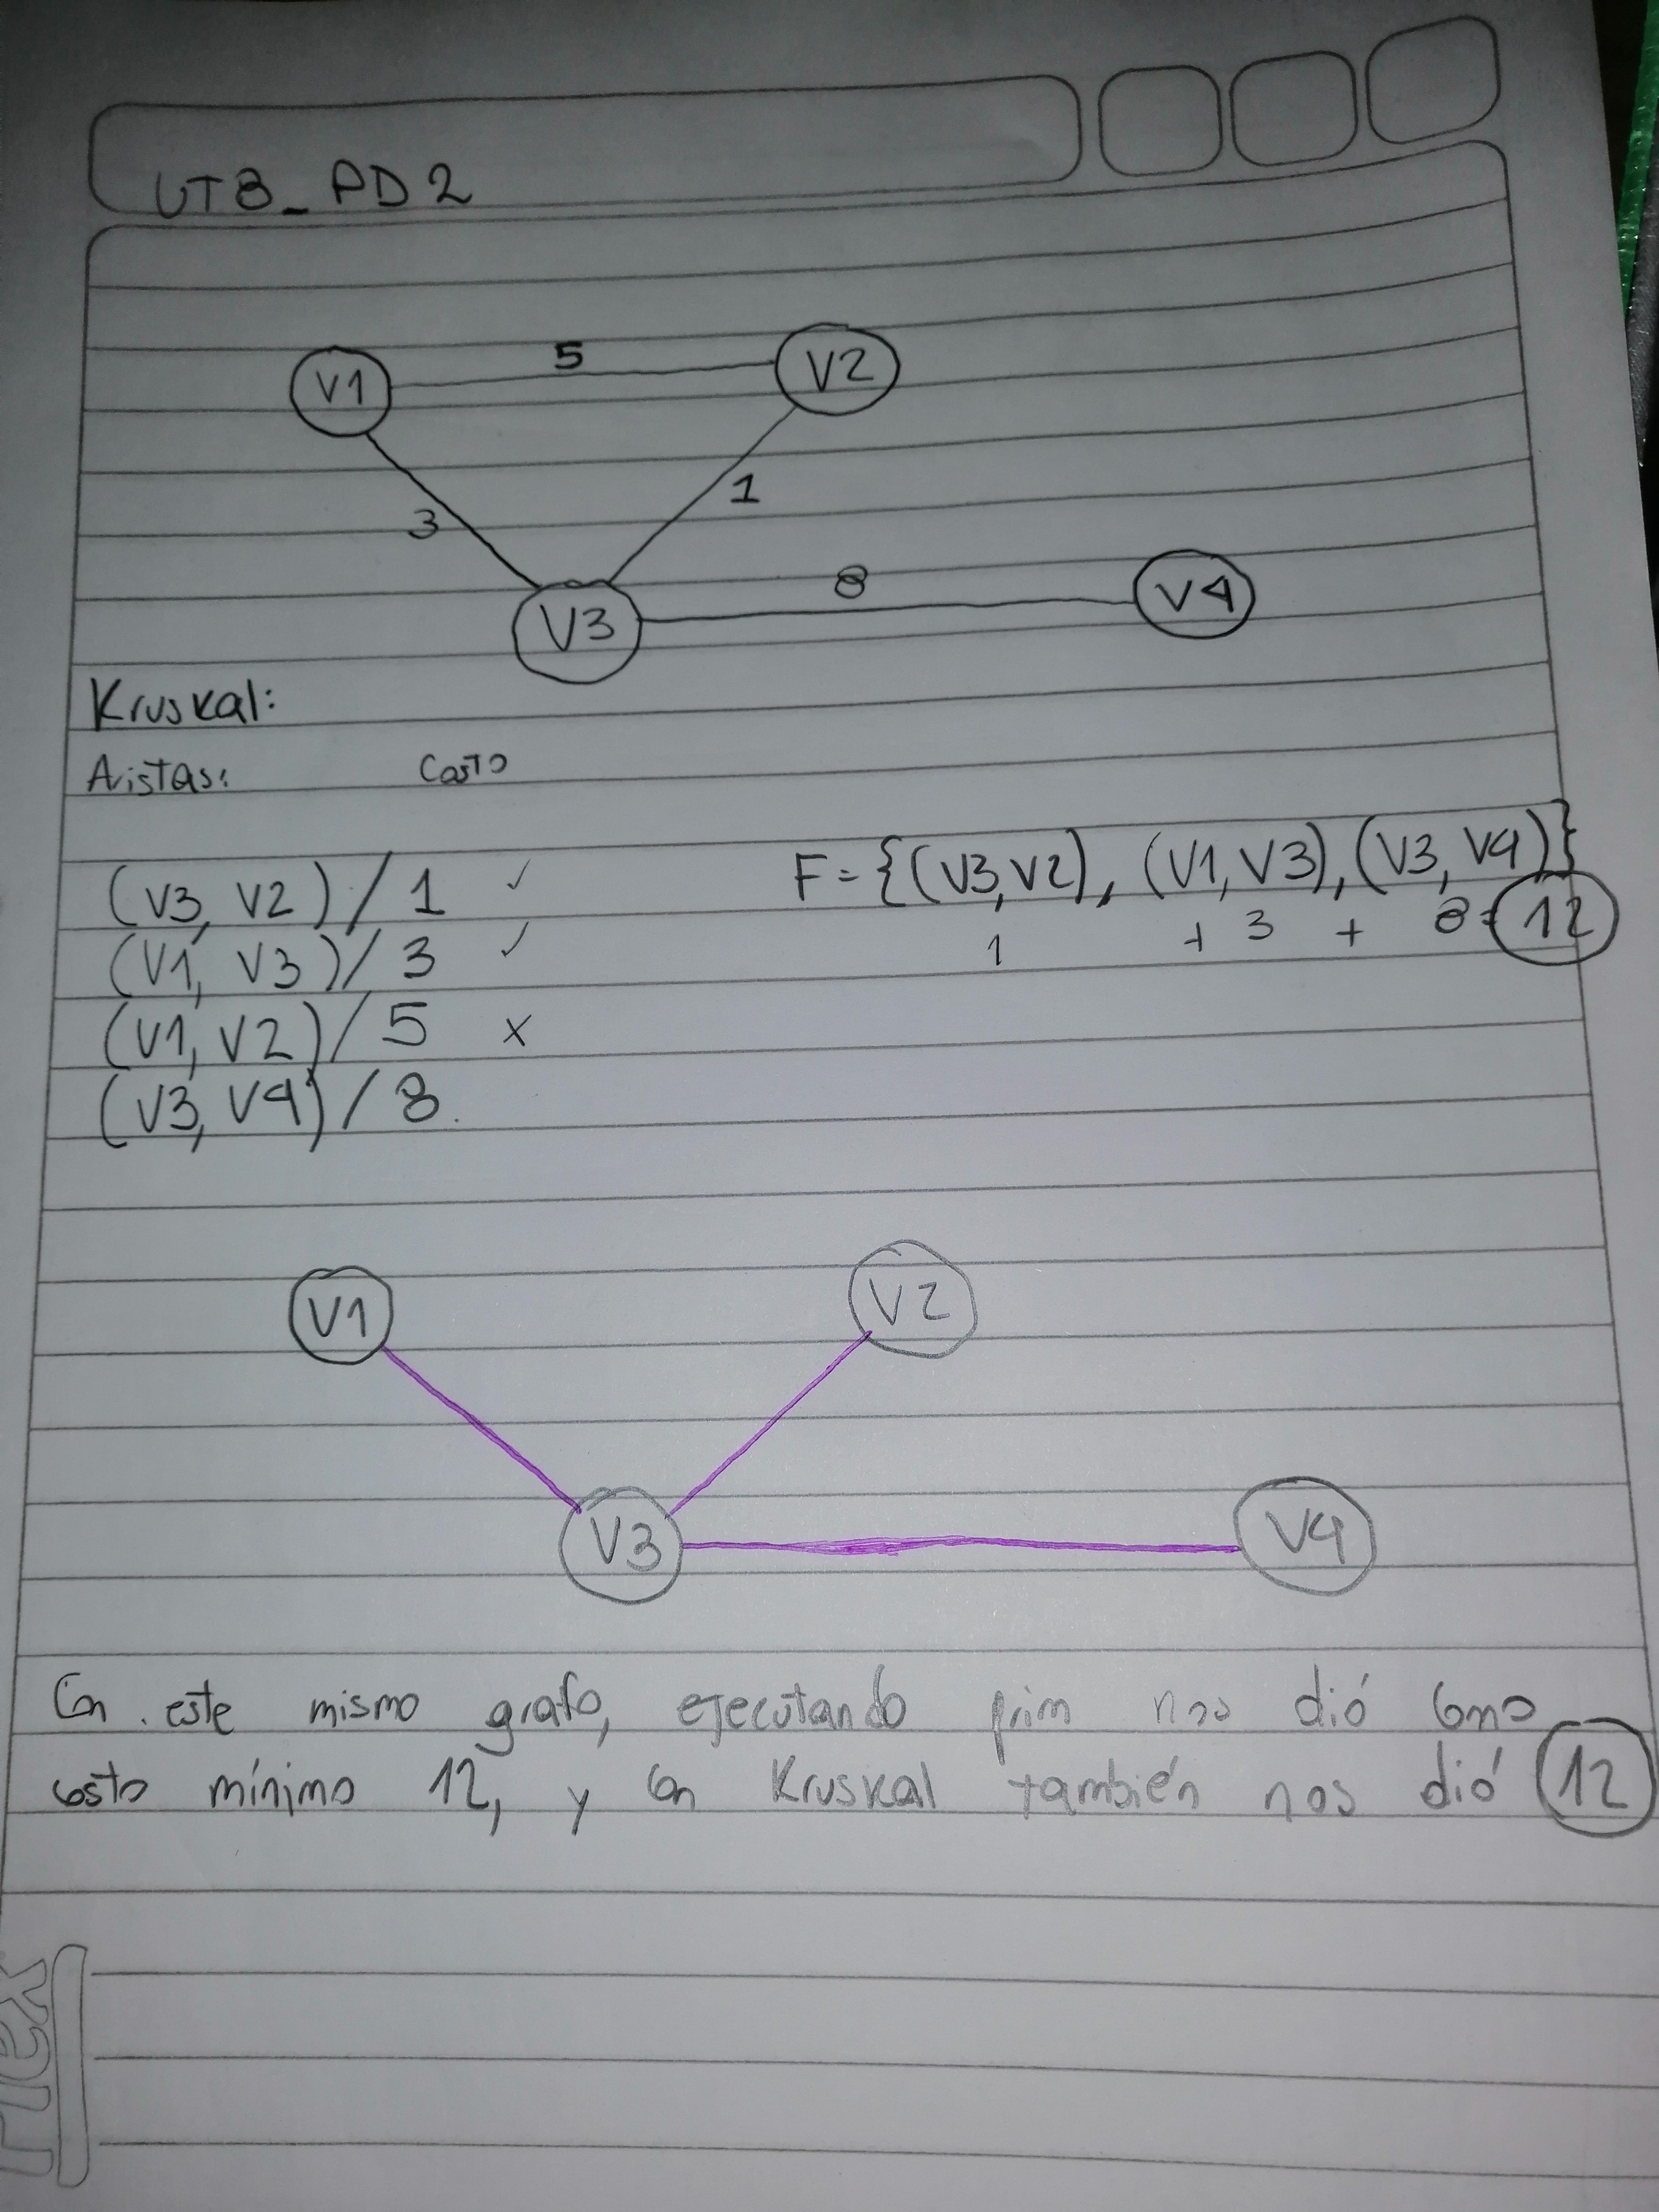 UT8_PD2
V1
5
V2
3
1
8
V3
V4
Kruskal:
Aristas: Costo
(V3, V2) / 1 ✓
F = {(V3,V2), (V1,V3), (V3, V4)}
1 + 3 + 8 = 12
(V1, V3) / 3 ✓
(V1, V2) / 5 x
(V3, V4) / 8.
V1
V2
V3
V4
Con este mismo grafo, ejecutando prim nos dió como
costo mínimo 12, y con Kruskal también nos dió 12